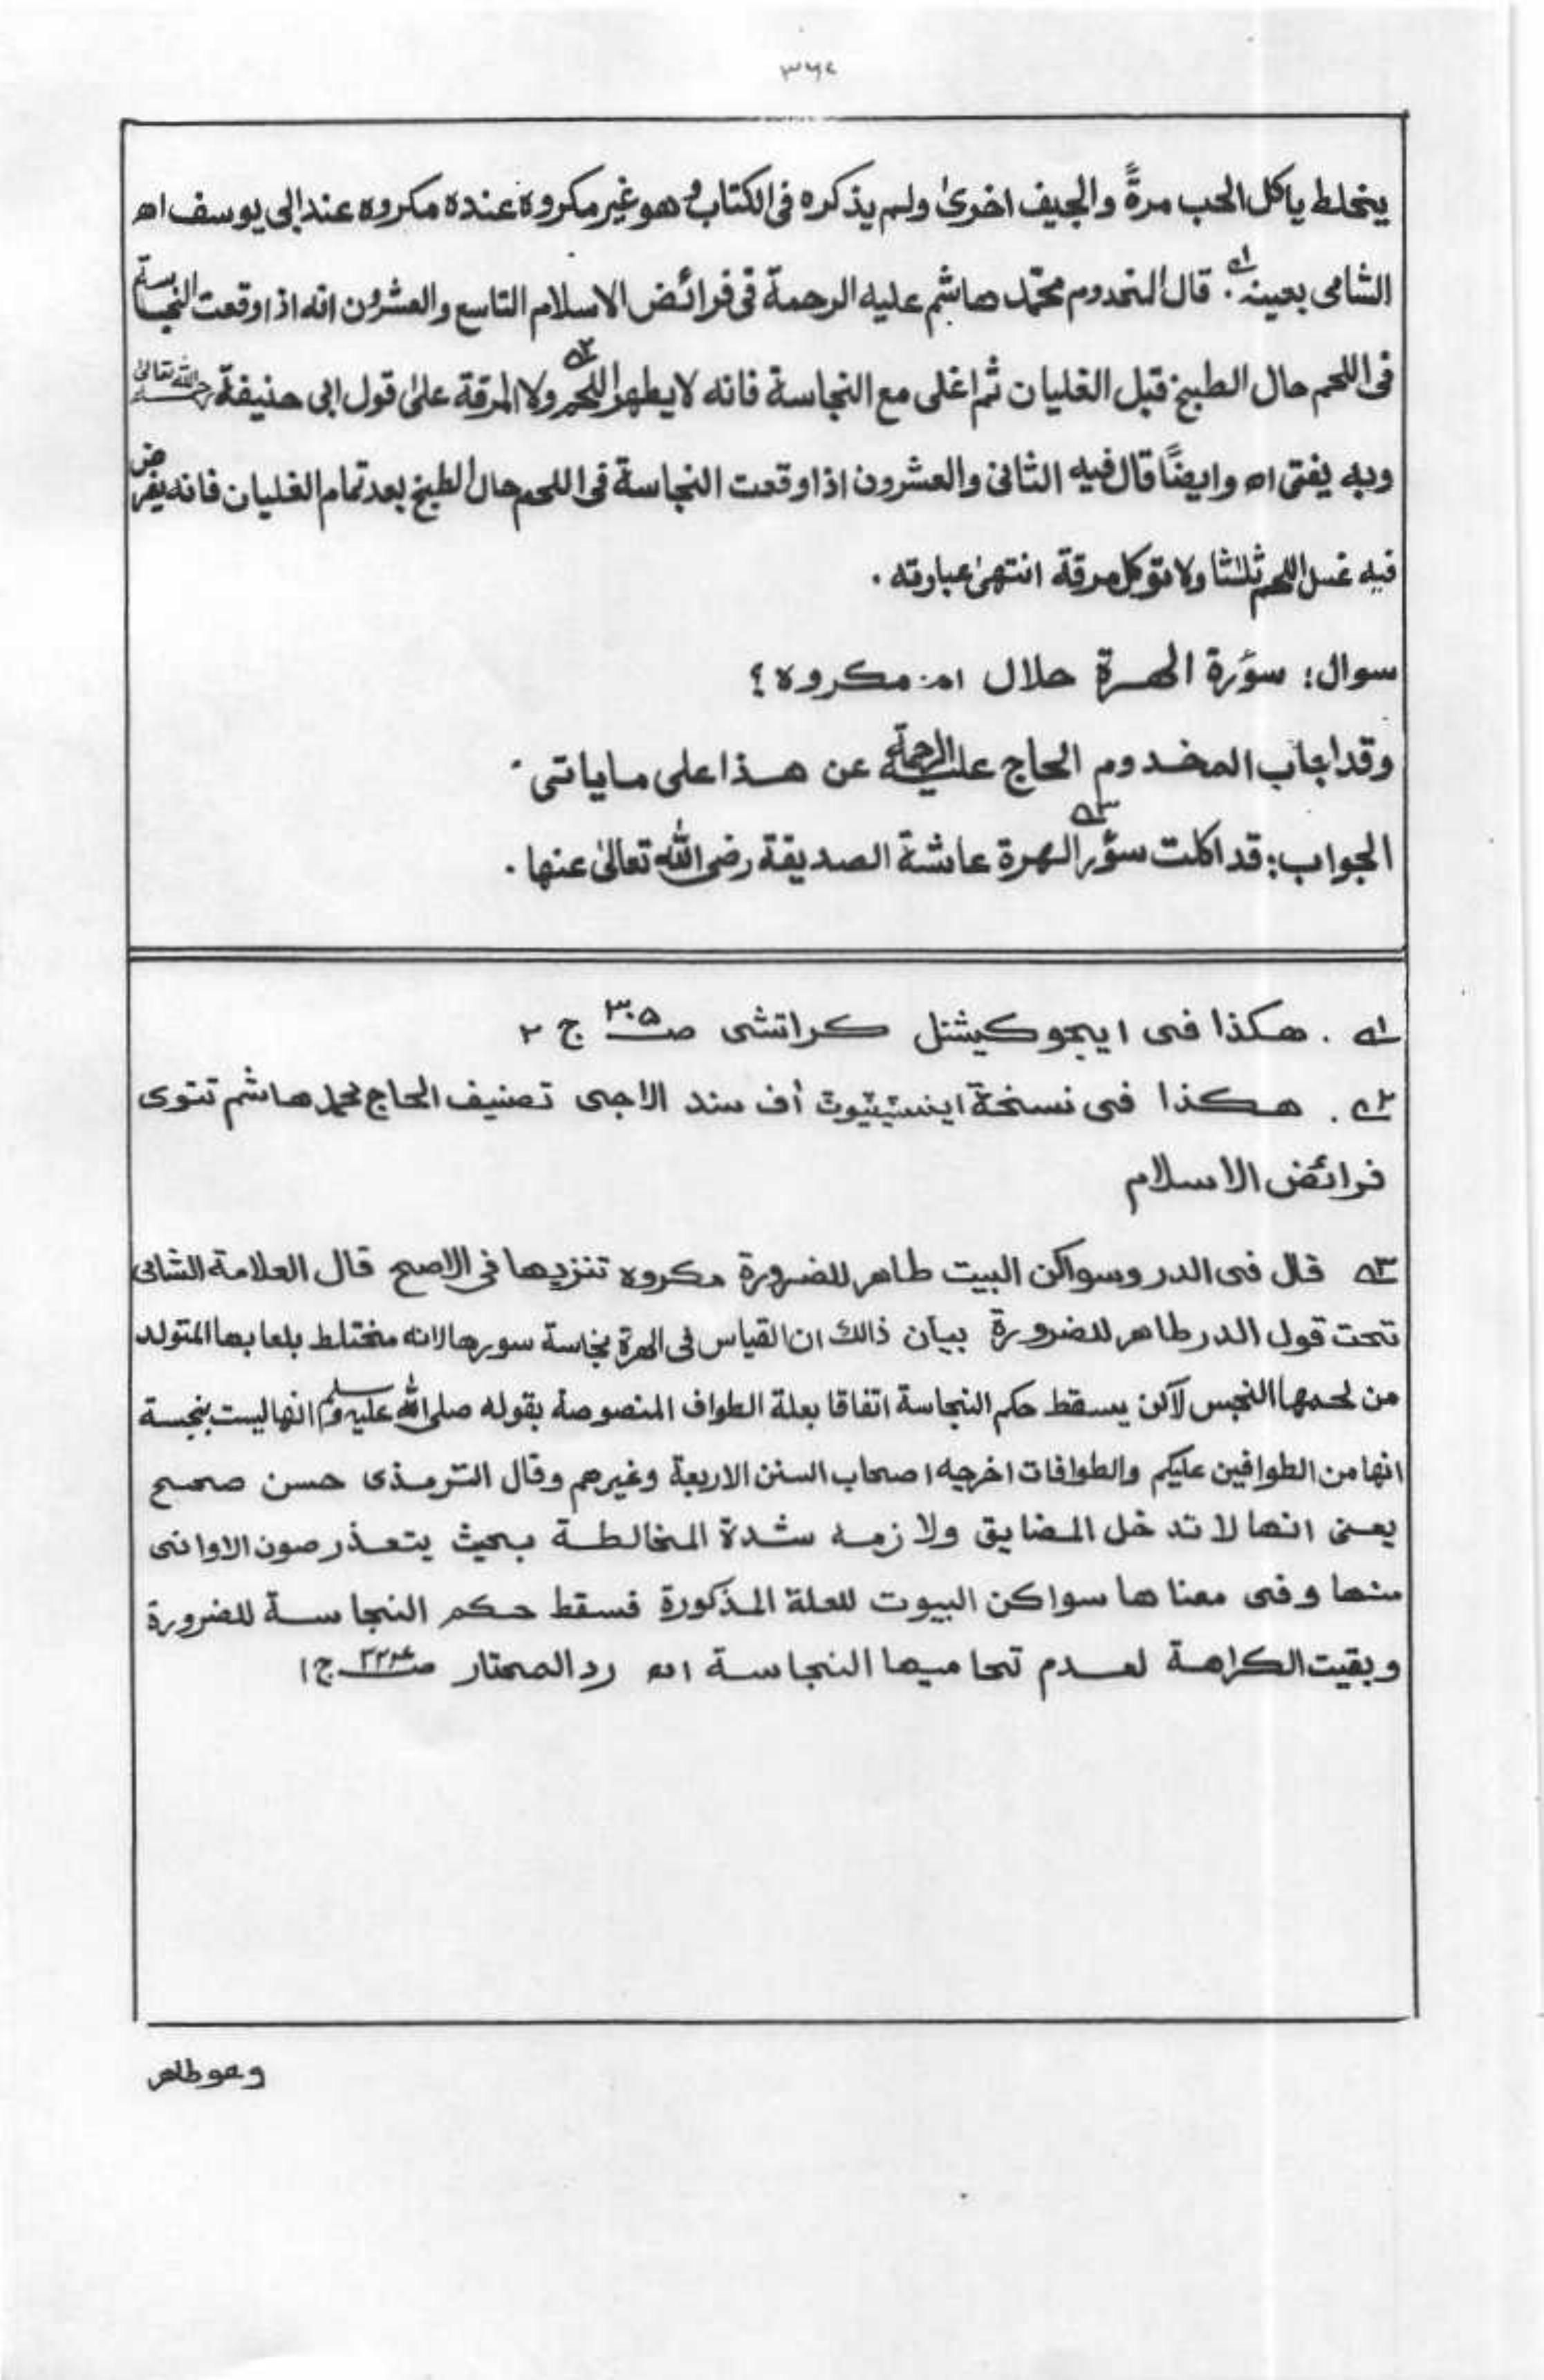 يخلط ياكل الحب مرةً والجيف اخرىٰ ولم يذكره فى الكتاب وهو غير مكروه عنده مكروه عند ابى يوسف اھ
الشامى بعينه ۱ے. قال المخدوم محمّد هاشم عليه الرحمة فى فرائض الاسلام التاسع والعشرون انه اذا وقعت النجاسة
فى اللحم حال الطبخ قبل الغليان ثم اغلى مع النجاسة فانه لا يطهر اللحم ۲ے ولا المرقة علىٰ قول ابى حنيفة رحمه الله تعالىٰ
وبه يفتى اھ وايضًا قال فيه الثانى والعشرون اذا وقعت النجاسة فى اللحم حال الطبخ بعد تمام الغليان فانه يفرض
فيه غسل اللحم ثلٰثا ولا توكل مرقة انتهىٰ عبارته .
سوال: سؤرة الهرة حلال ام مكروه؟
وقد اجاب المخدوم الحاج عليه الرحمة عن هذا على ما ياتى .
الجواب: قد اكلت سؤر ۳ے الهرة عائشة الصديقة رضى الله تعالىٰ عنها .
۱ے . هكذا فى ايجوكيشنل كراتشى صـ ۳۰۵ ج ۲
۲ے . هكذا فى نسخة اينستيتيوت أف سند الاجى تصنيف الحاج محمد هاشم تتوى
فرائض الاسلام
۳ے قال فى الدر وسواكن البيت طاهر للضرورة مكروه تنزيها فى الاصح قال العلامة الشامى
تحت قول الدر طاهر للضرورة بيان ذالك ان القياس فى الهرة نجاسة سورها لانه مختلط بلعابها المتولد
من لحمها النجس لآكن يسقط حكم النجاسة اتفاقا بعلة الطواف المنصوصة بقوله صلى الله عليه وسلم انها ليست بنجسة
انها من الطوافين عليكم والطوافات اخرجه اصحاب السنن الاربعة وغيرهم وقال الترمذى حسن صحيح
يعنى انها لا تدخل المضايق ولازمه شدة المخالطة بحيث يتعذر صون الاوانى
منها وفى معناها سواكن البيوت للعلة المذكورة فسقط حكم النجاسة للضرورة
وبقيت الكراهة لعدم تحاميها النجاسة اھ رد المحتار صـ ج ۱
وهو طاهر